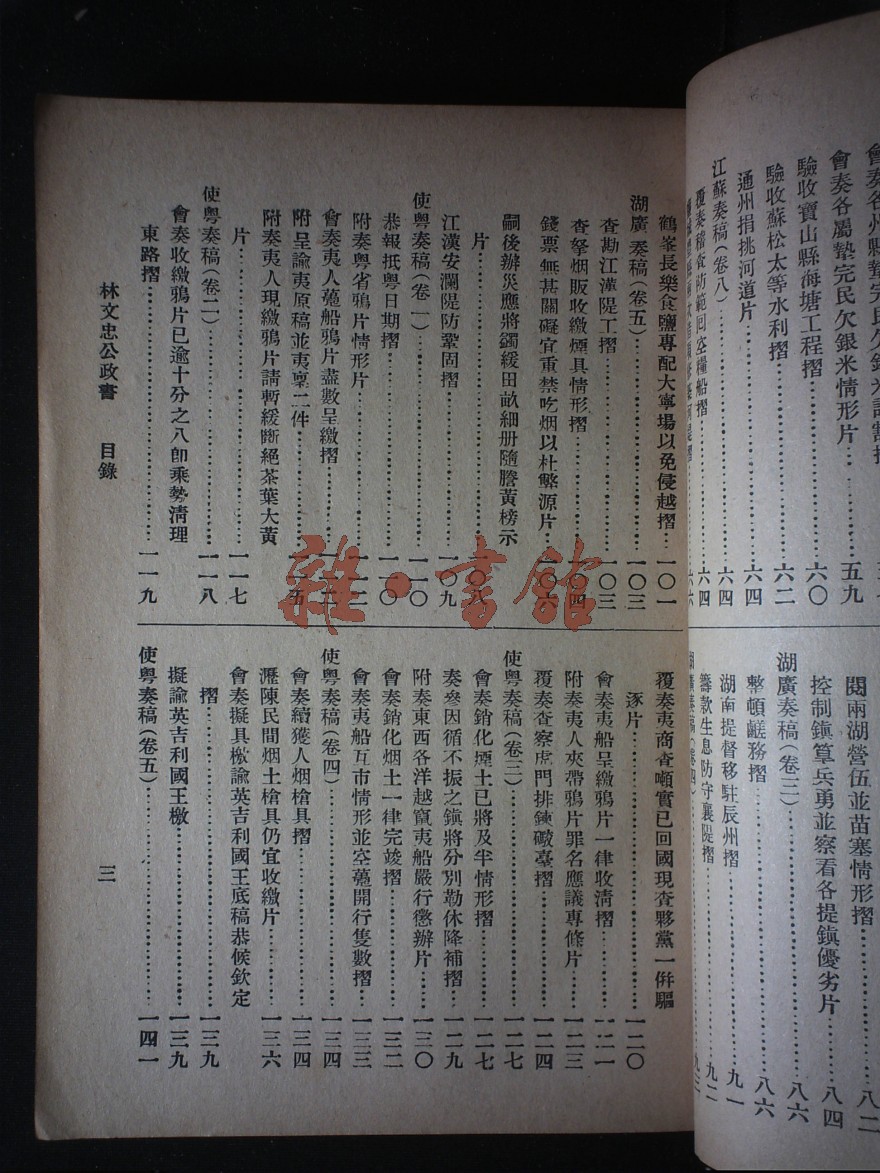 會奏各屬墊完民欠銀米情形片…五九
驗收寶山縣海塘工程摺…六〇
驗收蘇松太等水利摺…六二
通州捐挑河道片…六四
江蘇奏稿(卷八)…六四
覆奏稽查防範回空糧船摺…六四
六六
閱兩湖營伍並苗塞情形摺…八二
控制鎭筸兵勇並察看各提鎭優劣片…八四
湖廣奏稿(卷三)…八六
整頓鹺務摺…八六
湖南提督移駐辰州摺…九一
籌款生息防守襄隄摺…九二
湖廣奏稿(卷四)…九三
鶴峯長樂食鹽專配大寧場以免侵越摺…一〇一
湖廣奏稿(卷五)…一〇三
查勘江漢隄工摺…一〇三
查拏烟販收繳煙具情形摺…一〇四
錢票無甚關礙宜重禁吃烟以杜弊源片…一〇六
嗣後辦災應將蠲緩田畝細册隨謄黃榜示
片…一〇八
江漢安瀾隄防鞏固摺…一〇九
使粤奏稿(卷一)…一一〇
恭報抵粤日期摺…一一〇
附奏粤省鴉片情形片…一一二
會奏夷人躉船鴉片盡數呈繳摺…一一二
附呈諭夷原稿並夷稟二件…一一五
附奏夷人現繳鴉片請暫緩斷絕茶葉大黃
片…一一七
使粤奏稿(卷二)…一一八
會奏收繳鴉片已逾十分之八卽乘勢清理
東路摺…一一九
覆奏夷商查噸實已回國現查夥黨一倂驅
逐片…一二〇
會奏夷船呈繳鴉片一律收清摺…一二一
附奏夷人夾帶鴉片罪名應議專條片…一二三
覆奏查察虎門排鍊礮臺摺…一二四
使粤奏稿(卷三)…一二七
會奏銷化煙土已將及半情形摺…一二七
奏參因循不振之鎭將分別勒休降補摺…一二九
附奏東西各洋越竄夷船嚴行懲辦片…一三〇
會奏銷化烟土一律完竣摺…一三二
會奏夷船互市情形並空躉開行隻數摺…一三三
使粤奏稿(卷四)…一三四
會奏續獲人烟槍具摺…一三四
瀝陳民間烟土槍具仍宜收繳片…一三六
會奏擬具檄諭英吉利國王底稿恭候欽定
摺…一三九
擬諭英吉利國王檄…一三九
使粤奏稿(卷五)…一四一
林文忠公政書 目錄 三
雜·書館